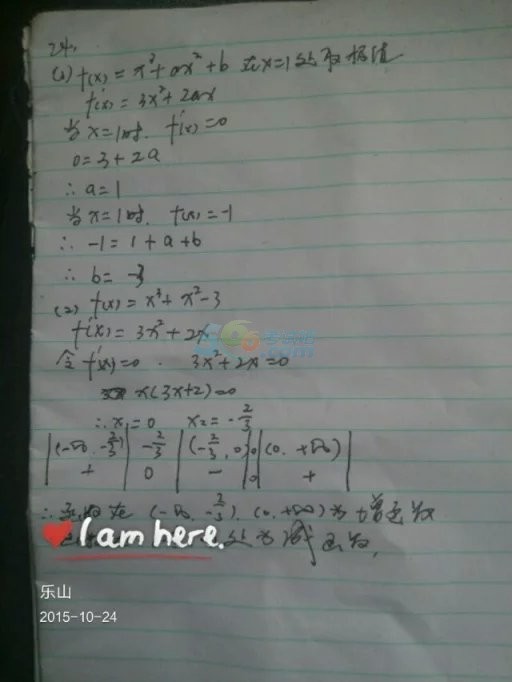 24.
(1) f(x) = x³+ax²+b 在x=1处取极值
f'(x) = 3x²+2ax
当x=1时. f'(x)=0
0=3+2a
∴ a=1
当x=1时, f(x)=-1
∴ -1=1+a+b
∴ b= -3
(2) f(x)= x³+x²-3
f'(x)= 3x²+2x
令f'(x)=0 . 3x²+2x=0
x(3x+2)=0
∴x=0 x₂=-2/3
(-∞, -2/3) -2/3 (-2/3, 0) 0 (0. +∞)
+ 0 - 0 +
∴函数在 (-∞, -2/3). (0.+∞)为增函数
I am here. 处为减函数.
乐山
2015-10-24